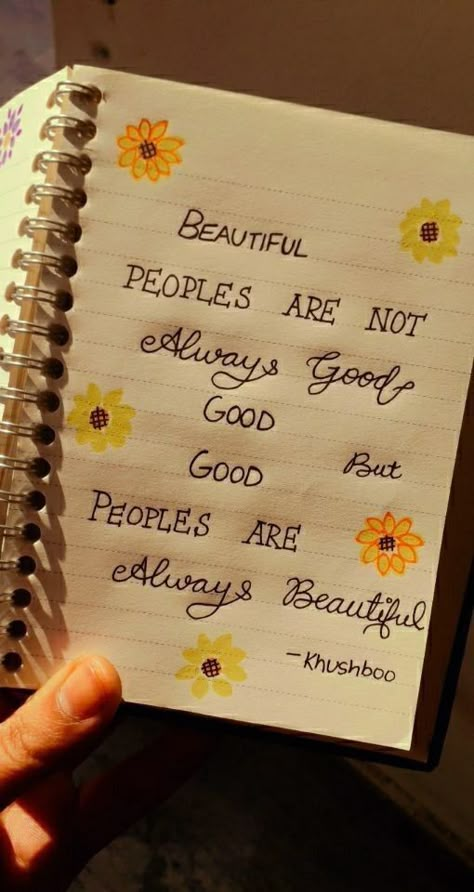 BEAUTIFUL
PEOPLES ARE NOT
Always Good
GOOD
GOOD But
PEOPLES ARE
Always Beautiful
- Khushboo